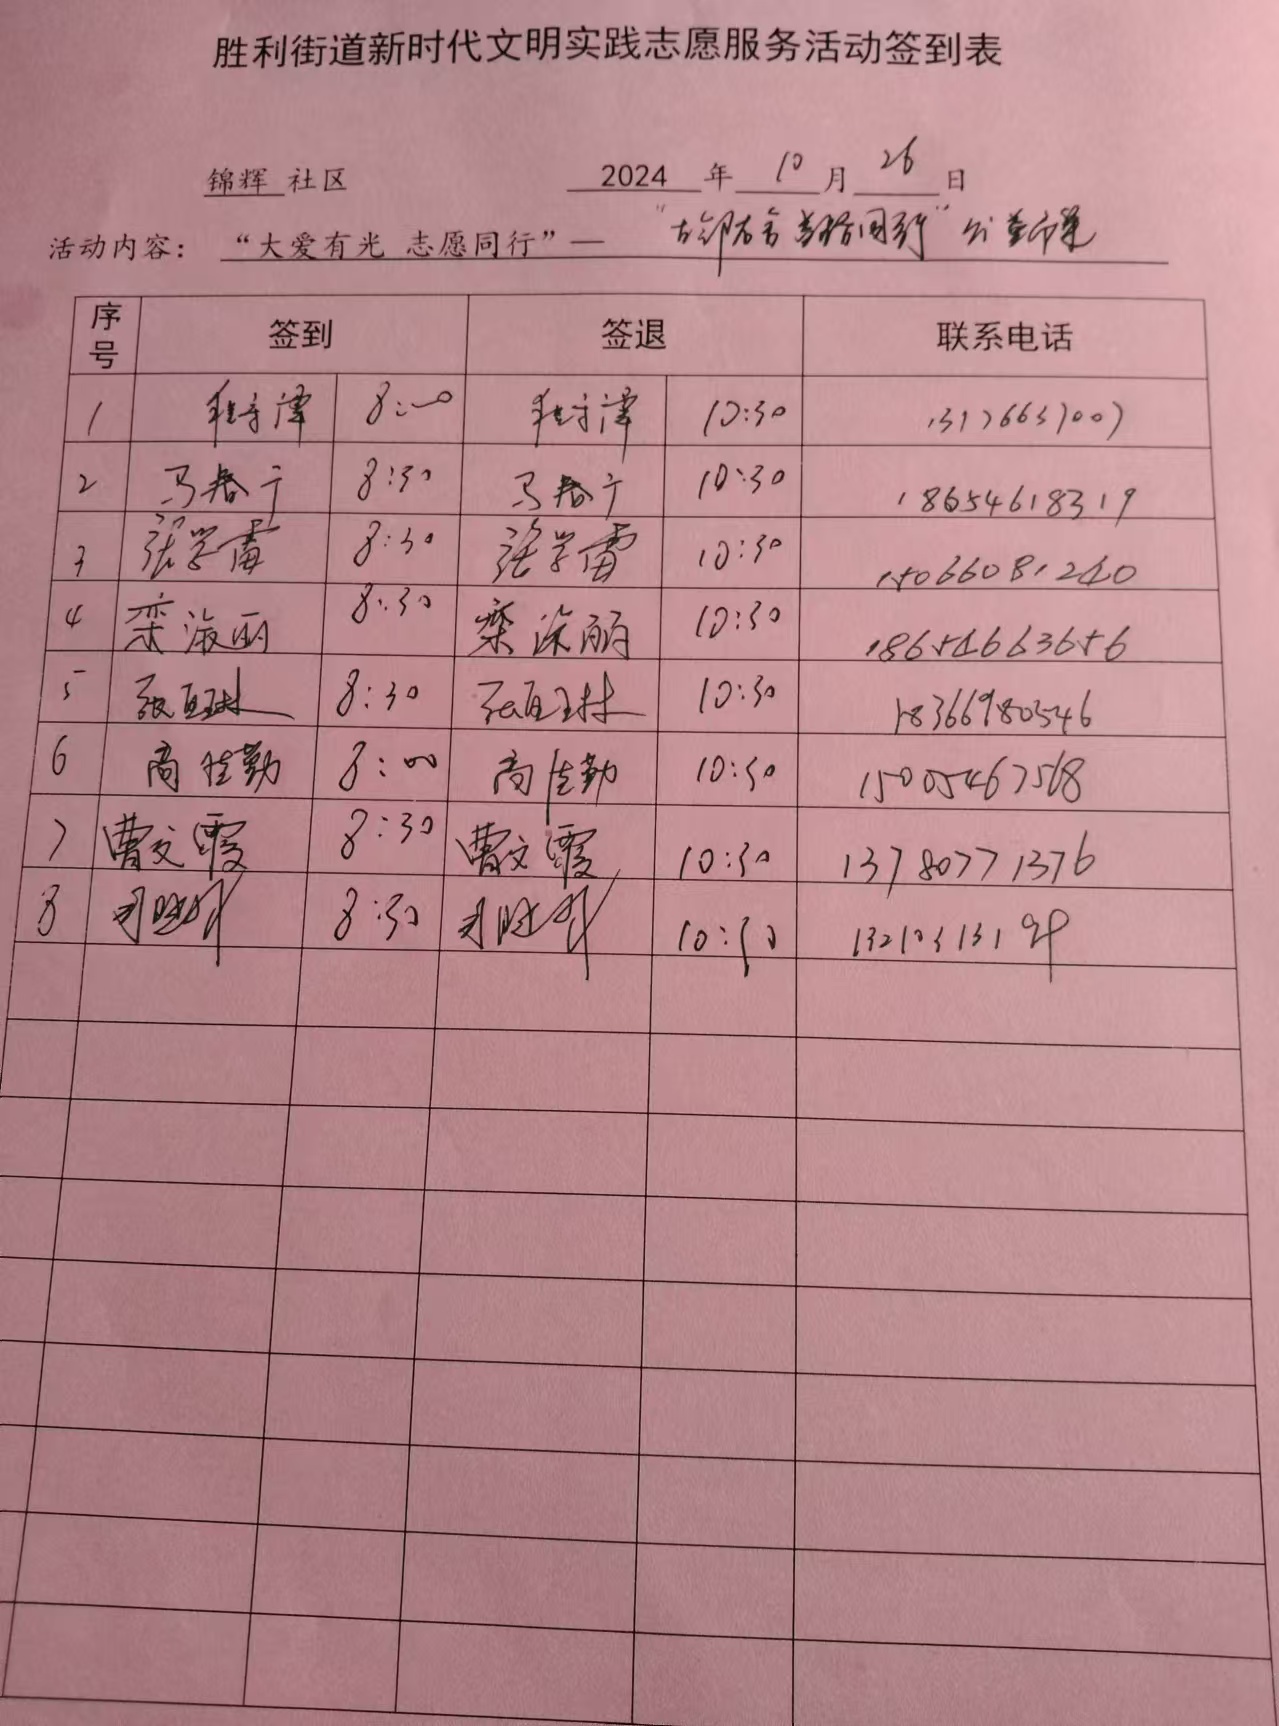 胜利街道新时代文明实践志愿服务活动签到表
锦辉 社区 2024 年 10 月 26 日
活动内容： “大爱有光 志愿同行”— “左邻右舍 同行” 公益
序号 签到 签退 联系电话
1 8:00 10:30
2 马春宁 8:30 马春宁 10:30 18654618319
3 张学雷 8:30 张学雷 10:30 15066081240
4 栾淑丽 8:30 栾淑丽 10:30 18654663656
5 8:30 10:30 18366980546
6 高佳勤 8:00 高佳勤 10:30 15005467568
7 曹文霞 8:30 曹文霞 10:30 13780771376
8 8:30 10:30